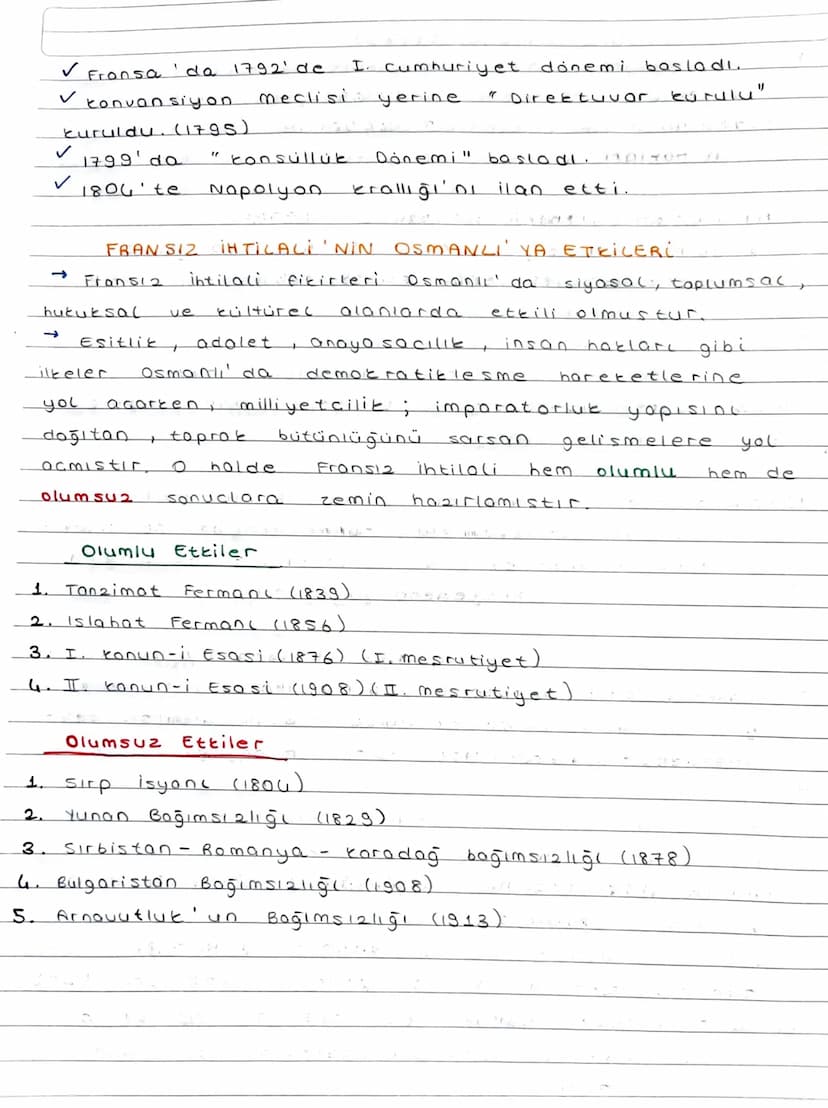 ✓ Fransa'da 1792'de I. Cumhuriyet dönemi basladı.
✓ Konvansiyon meclisi yerine "Direktuvar Kurulu"
kuruldu. (1795)
✓ 1799'da "Konsüllük Dönemi" basladı.
✓ 1804'te Napolyon krallığı'nı ilan etti.
FRANSIZ İHTİLALİ'NİN OSMANLI'YA ETKİLERİ
→ Fransız ihtilali fikirleri Osmanlı'da siyasal, toplumsal,
hukuksal ve kültürel alanlarda etkili olmustur.
→ Esitlik, adalet, anayasacılık, insan hakları gibi
ilkeler Osmanlı'da demokratiklesme hareketlerine
yol acarken, milliyetcilik; imparatorluk yapısını
dağıtan, toprak bütünlüğünü sarsan gelismelere yol
acmıstır. O halde Fransız ihtilali hem olumlu hem de
olumsuz sonuclara zemin hazırlamıstır.
Olumlu Etkiler
1. Tanzimat Fermanı (1839)
2. Islahat Fermanı (1856)
3. I. Kanun-i Esasi (1876) (I. mesrutiyet)
4. II. Kanun-i Esasi (1908) (II. mesrutiyet)
Olumsuz Etkiler
1. Sırp isyanı (1804)
2. Yunan Bağımsızlığı (1829)
3. Sırbistan - Romanya - Karadağ bağımsızlığı (1878)
4. Bulgaristan Bağımsızlığı (1908)
5. Arnavutluk'un Bağımsızlığı (1913)